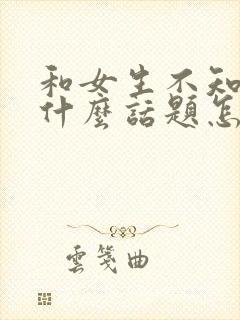 和女生不知
什麼話題怎
雲箋曲